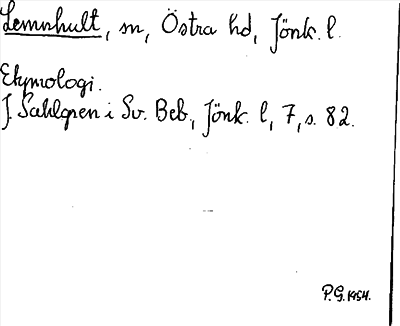 Lemnhult, sn, Östra hd, Jönk. l.
Etymologi.
J. Sahlgren i Sv. Beb., Jönk. l, 7, s. 82.
P.G. 1954.